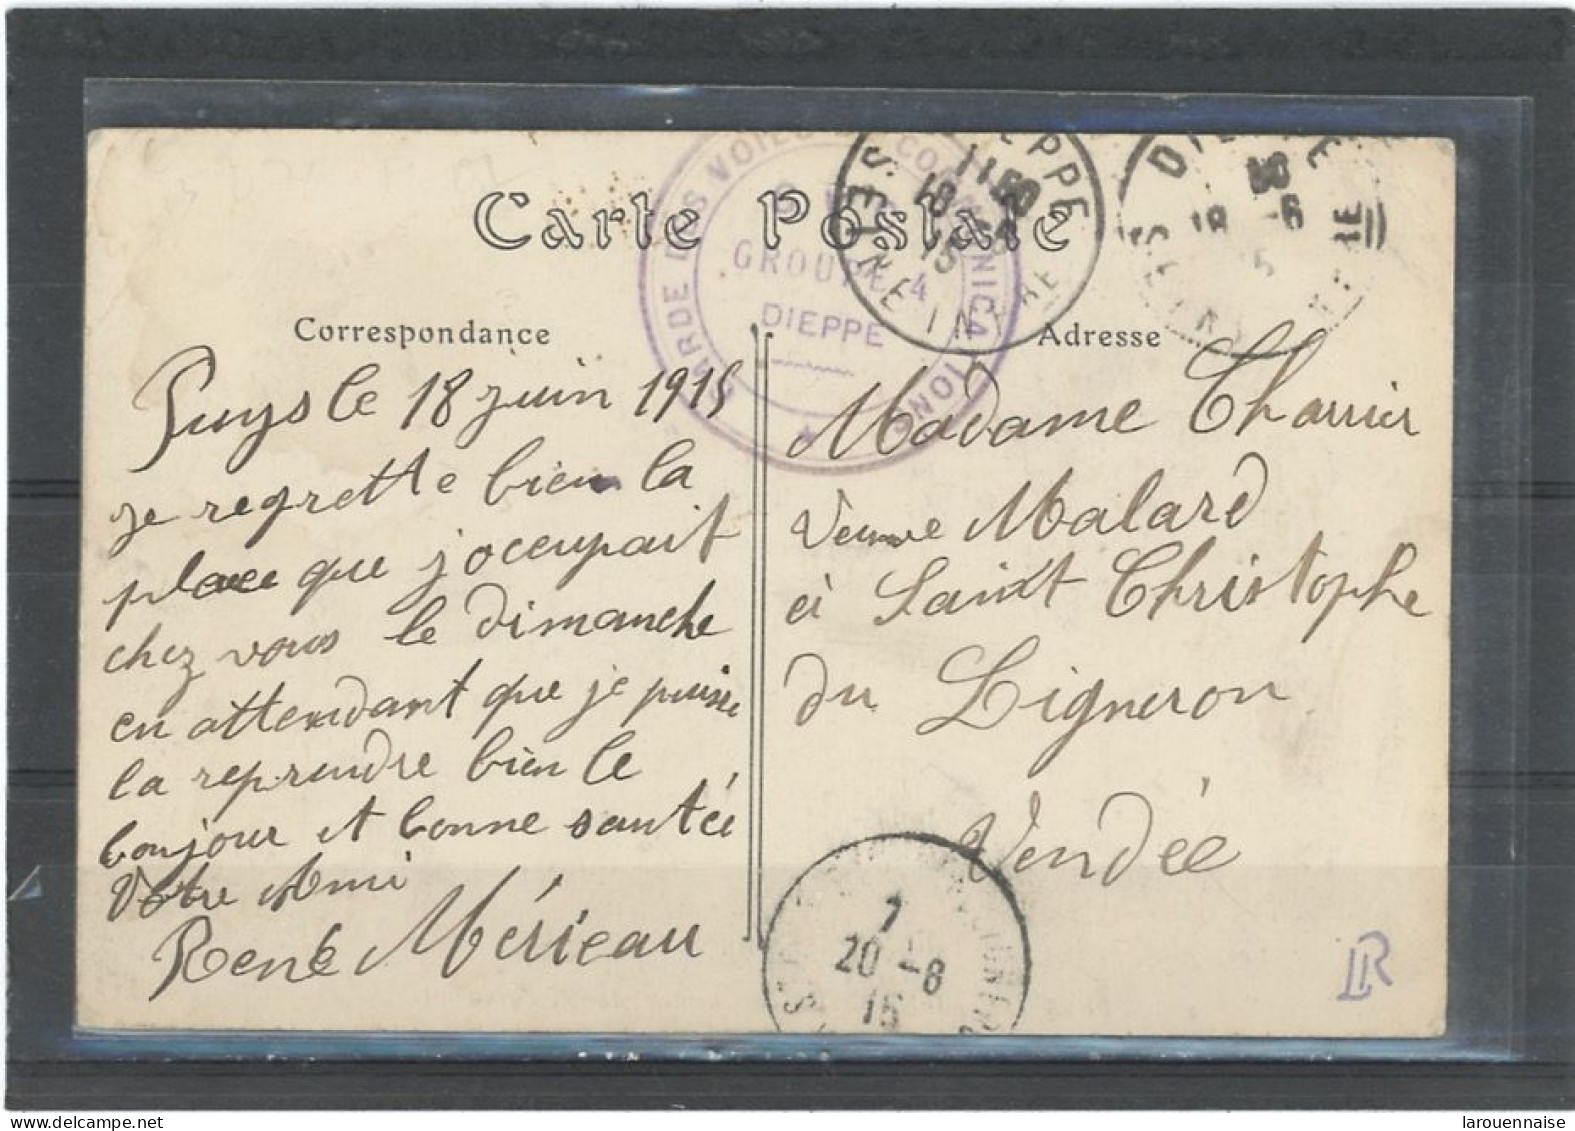 Carte Postale
Correspondance
Adresse
GARDE DES VOIES DE COMMUNICATIONS
GROUPE 4
DIEPPE
DIEPPE
11 50
18 -6
15
SEINE INFRE
DIEPPE
50
18 -6
15
Puys le 18 juin 1915
je regrette bien la
place que j'occupait
chez vous le dimanche
en attendant que je puisse
la reprendre bien le
bonjour et bonne santée
Votre Ami
René Mérieau
Madame Charrier
Veuve Malard
à Saint Christophe
du Ligneron
Vendée
7
20 -6
15
LR
delcampe.net
larouennaise